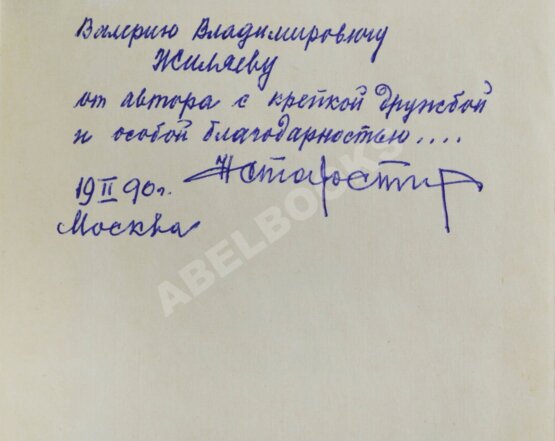 Валерию Владимировичу
Жиляеву
от автора с крепкой дружбой
и особой благодарностью....
19 II 90 г.
НСтаростин
Москва
ABELBOOKS